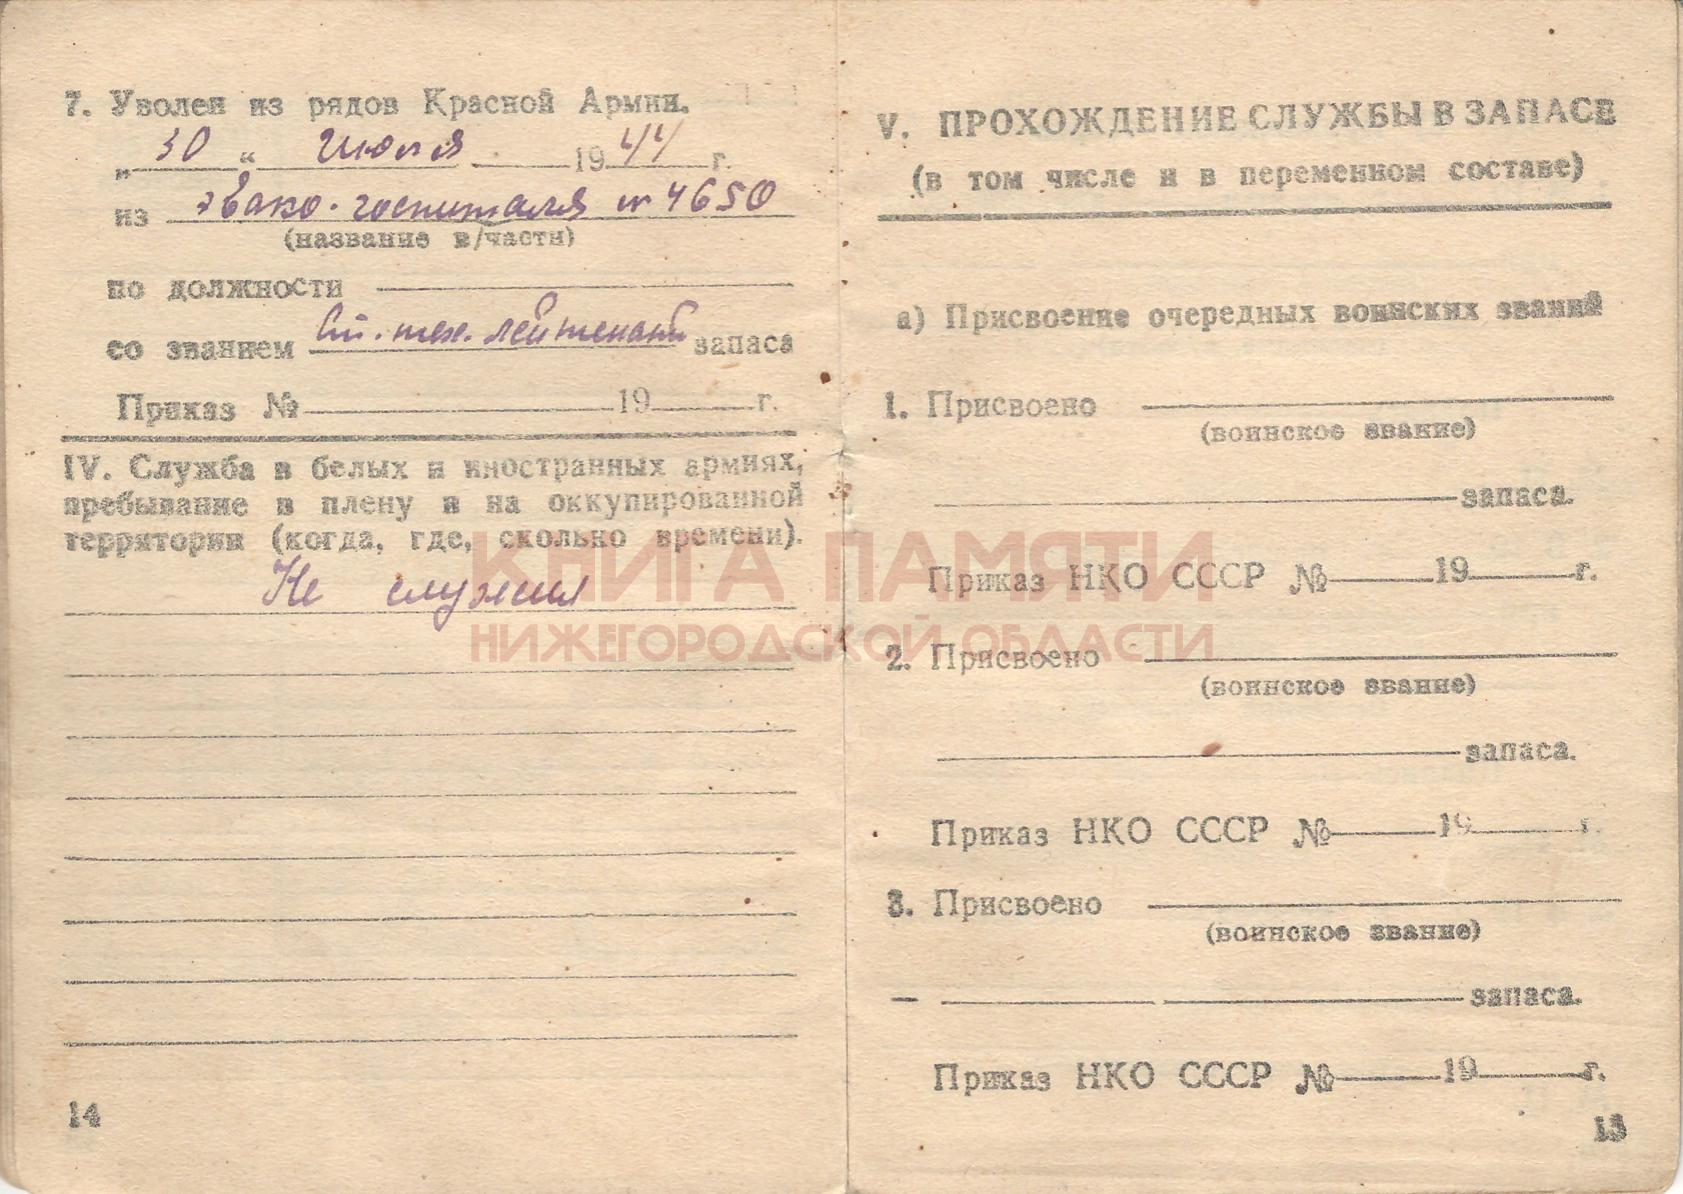 7. Уволен из рядов Красной Армии.
„ 30 “ Июля 1944 г.
из эвако-госпиталя № 4650
(название в/части)
по должности
со званием Ст. тех. лейтенант запаса
Приказ № 19 г.
IV. Служба в белых и иностранных армиях,
пребывание в плену и на оккупированной
территории (когда, где, сколько времени).
Не служил
14
V. ПРОХОЖДЕНИЕ СЛУЖБЫ В ЗАПАСЕ
(в том числе и в переменном составе)
а) Присвоение очередных воинских званий
1. Присвоено
(воинское звание)
запаса.
Приказ НКО СССР № 19 г.
2. Присвоено
(воинское звание)
запаса.
Приказ НКО СССР № 19 г.
3. Присвоено
(воинское звание)
запаса.
Приказ НКО СССР № 19 г.
15
КНИГА ПАМЯТИ
НИЖЕГОРОДСКОЙ ОБЛАСТИ